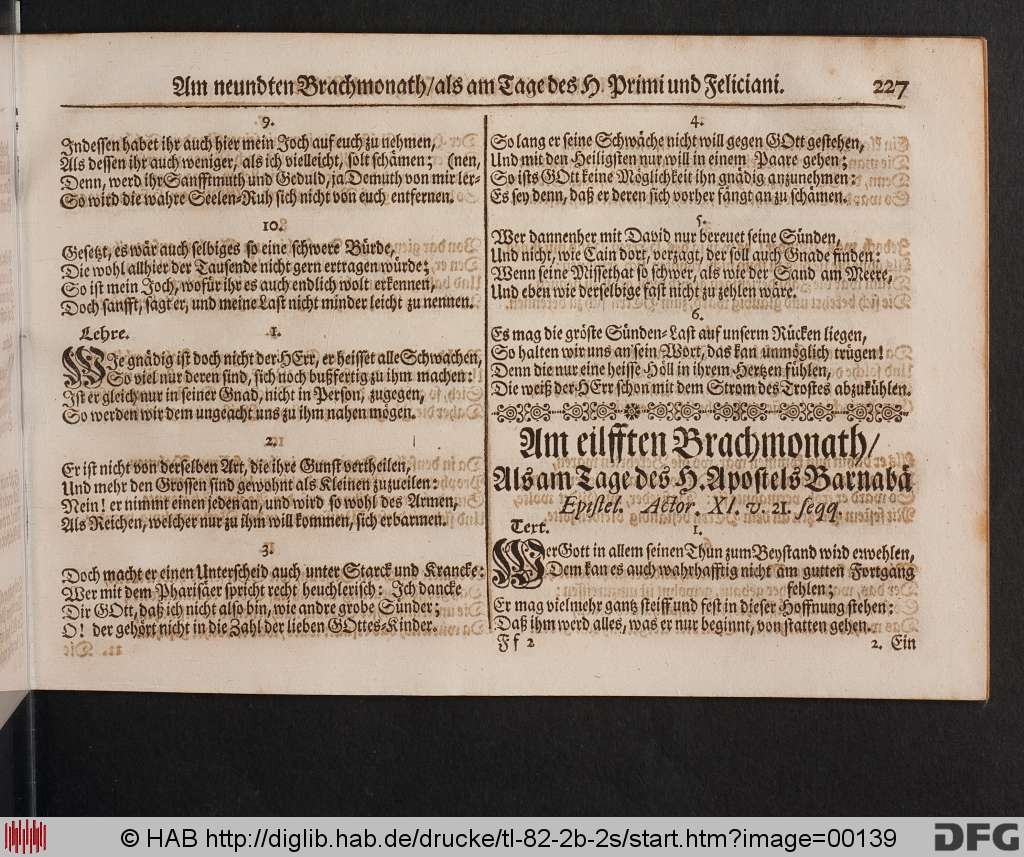 Am neundten Brachmonath/als am Tage des H. Primi und Feliciani. 227
9.
Indessen habet ihr auch hier mein Joch auf euch zu nehmen,
Als dessen ihr auch weniger, als ich vielleicht, solt schämen; (nen,
Denn, werd ihr Sanfftmuth und Geduld, ja Demuth von mir ler-
So wird die wahre Seelen-Ruh sich nicht von euch entfernen.
10.
Gesetzt, es wär auch selbiges so eine schwere Bürde,
Die wohl allhier der Tausende nicht gern ertragen würde;
So ist mein Joch, wofür ihr es auch endlich wolt erkennen,
Doch sanfft, sagt er, und meine Last nicht minder leicht zu nennen.
Lehre. 1.
WIe gnädig ist doch nicht der HErr, er heisset alle Schwachen,
So viel nur deren sind, sich noch bußfertig zu ihm machen:
Ist er gleich nur in seiner Gnad, nicht in Person, zugegen,
So werden wir dem ungeacht uns zu ihm nahen mögen.
2.
Er ist nicht von derselben Art, die ihre Gunst vertheilen,
Und mehr den Grossen sind gewohnt als Kleinen zuzueilen:
Nein! er nimmt einen jeden an, und wird so wohl des Armen,
Als Reichen, welcher nur zu ihm will kommen, sich erbarmen.
3.
Doch macht er einen Unterscheid auch unter Starck und Krancke:
Wer mit dem Pharisäer spricht recht heuchlerisch: Ich dancke
Dir GOtt, daß ich nicht also bin, wie andre grobe Sünder;
O! der gehört nicht in die Zahl der lieben GOttes-Kinder.
4.
So lang er seine Schwäche nicht will gegen GOtt gestehen,
Und mit den Heiligsten nur will in einem Paare gehen;
So ists GOtt keine Möglichkeit ihn gnädig anzunehmen:
Es sey denn, daß er deren sich vorher fängt an zu schämen.
5.
Wer dannenher mit David nur bereuet seine Sünden,
Und nicht, wie Cain dort, verzagt, der soll auch Gnade finden:
Wenn seine Missethat so schwer, als wie der Sand am Meere,
Und eben wie derselbige fast nicht zu zehlen wäre.
6.
Es mag die gröste Sünden-Last auf unserm Rücken liegen,
So halten wir uns an sein Wort, das kan unmöglich trügen!
Denn die nur eine heisse Höll in ihrem Hertzen fühlen,
Die weiß der HErr schon mit dem Strom des Trostes abzukühlen.
Am eilfften Brachmonath/
Als am Tage des H. Apostels Barnabä
Epistel. Actor. XI. v. 21. seqq.
Text. 1.
WEr Gott in allem seinen Thun zum Beystand wird erwehlen,
Dem kan es auch wahrhafftig nicht am gutten Fortgang
fehlen;
Er mag vielmehr gantz steiff und fest in dieser Hoffnung stehen:
Daß ihm werd alles, was er nur beginnt, von statten gehen.
F f 2 2. Ein
© HAB http://diglib.hab.de/drucke/tl-82-2b-2s/start.htm?image=00139 DFG